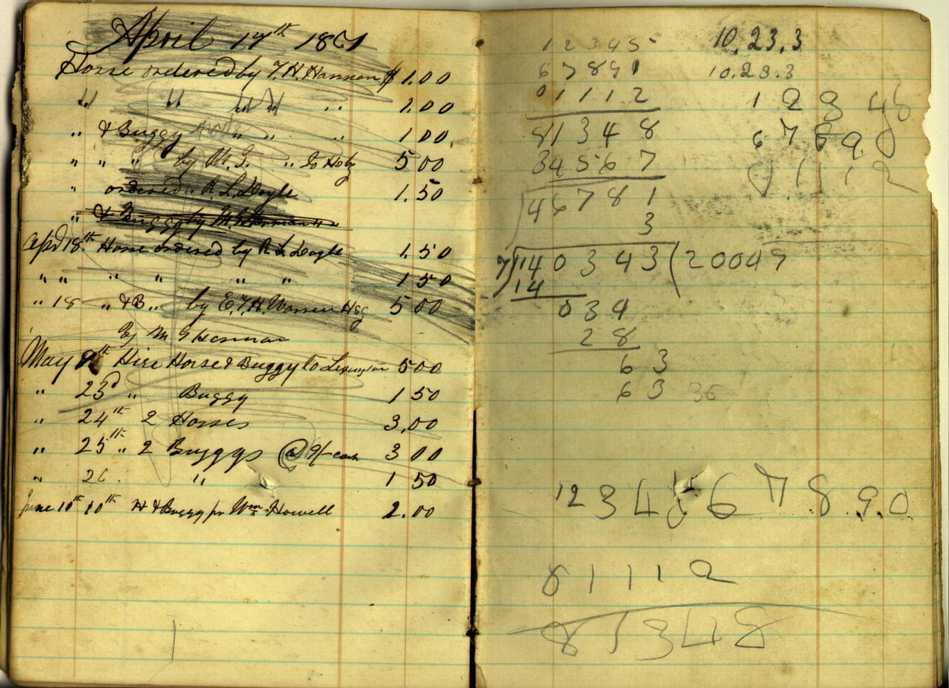 April 17th 1861
Horse ordered by T. H. Hannan $ 1.00
" " " " " 1.00
" & Buggy " " " 1.00
" " " by 5 00
" ordered " R L Doyle 1.50
" & Buggy by
Apd 18th Horse ordered by R L Doyle 1.50
" " " " " " 1 50
" 18 " & B " by E, T, H, Warren 5 00
By M G
May 9th Hire Horse & Buggy to Lexington 5 00
" 23d " Buggy 1 50
" 24th 2 Horses 3,00
" 25th " 2 Buggys @ 9/- each 3 00
" 26. " 1 50
June 10th 10th H & Buggy for Wm Howell 2.00
1 2 3 4 5
6 7 8 9 1
0 1 1 1 2
8 1 3 4 8
3 4 5 6 7
4 6 7 8 1
3
7) 1 4 0 3 4 3 ( 2 0 0 4 9
1 4
0 3 4
2 8
6 3
6 3 36
10, 23, 3
10. 23. 3
1 2 3 4 8
6 7 8 9. 0
8 1 1 1 2
1 2 3 4 5 6 7 8. 9. 0.
8 1 1 1 2
8 1 3 4 8